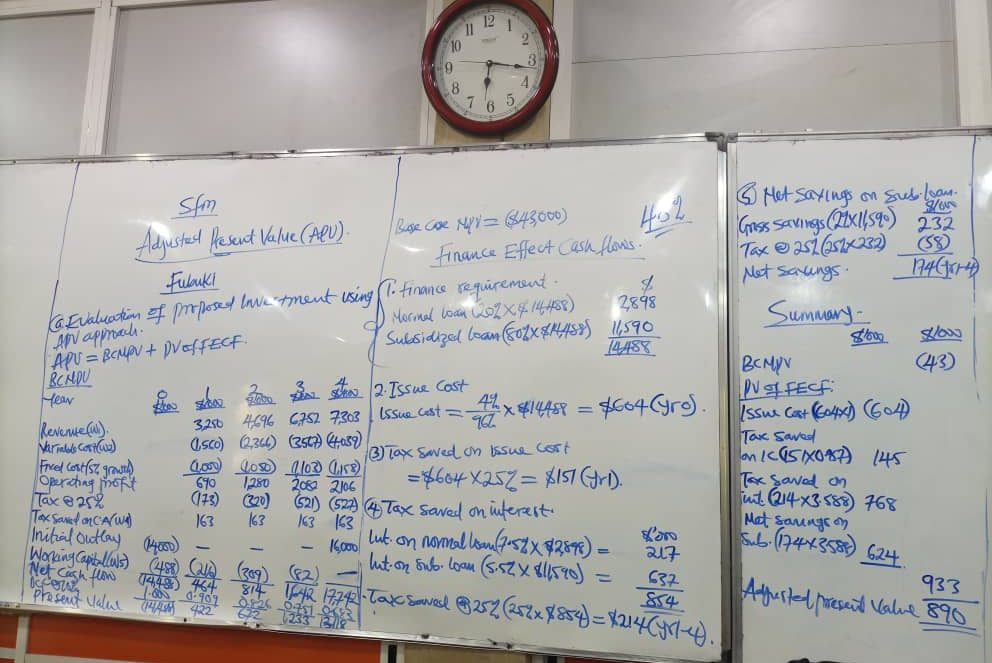 12
1
2
3
4
5
6
7
8
9
10
11
Sfm
Adjusted Present Value (APV).
Fubuki
(a Evaluation of Proposed Investment using
APV approach.
APV = BCNPV + PV OF FECF.
BCNPV
Year 0 1 2 3 4
$000 $000 $000 $000 $000
Revenue(W1) 3,250 4,696 6,752 7,303
Variable Cost(W2) (1,560) (2,366) (3567) (4,039)
Fixed Cost(5% growth) (1,000) (1,050) (1,103) (1,158)
Operating profit 690 1280 2082 2106
Tax @ 25% (173) (320) (521) (527)
Tax saved on CA(W4) 163 163 163 163
Initial Outlay (14000) — — — 16000
Working Capital(W5) (488) (216) (309) (82) —
Net Cash flow (14488) 464 814 1642 17742
1.000 0.909 0.826 0.751 0.683
Present Value (14488) 422 672 1233 12118
Base case NPV = ($43,000)
40%
Finance Effect Cash flows.
1. Finance requirement. $
Normal loan (20% X $14,488) 2,898
Subsidized loan (80% X $14,488) 11,590
14,488
2. Issue Cost
Issue cost = 4%/96% X $14,488 = $604 (yr0).
3) Tax saved on Issue Cost
= $604 X 25% = $151 (yr1).
④ Tax saved on interest.
$'000
Int. on normal loan (7.5% X $2898) = 217
Int. on Sub. loan (5.5% X $11,590) = 637
854
Tax saved @ 25% (25% X $854) = $214 (yr1-4).
⑤ Net Savings on Sub. loan.
$'000
Gross savings (2% X 11,590) 232
Tax @ 25% (25% X 232) (58)
Net savings. 174 (yr1-4)
Summary -
$'000 $'000
BCNPV (43)
PV OF FECF:
Issue Cost (604X1) (604)
Tax Saved
on IC (151X0.957) 145
Tax Saved on
int. (214 X 3.588) 768
Net savings on
Sub. (174X3588) 624
933
Adjusted present Value 890